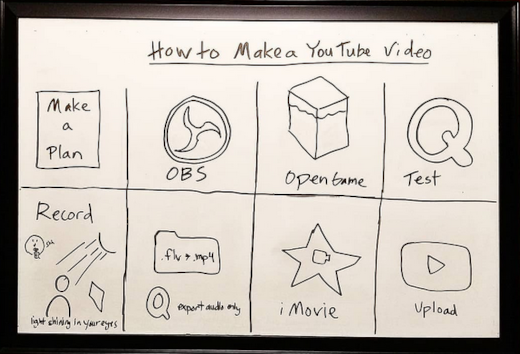 How to Make a YouTube Video
Make
a
Plan
OBS
Open Game
Test
Record
.flv → .mp4
export audio only
light shining in your eyes
iMovie
Upload